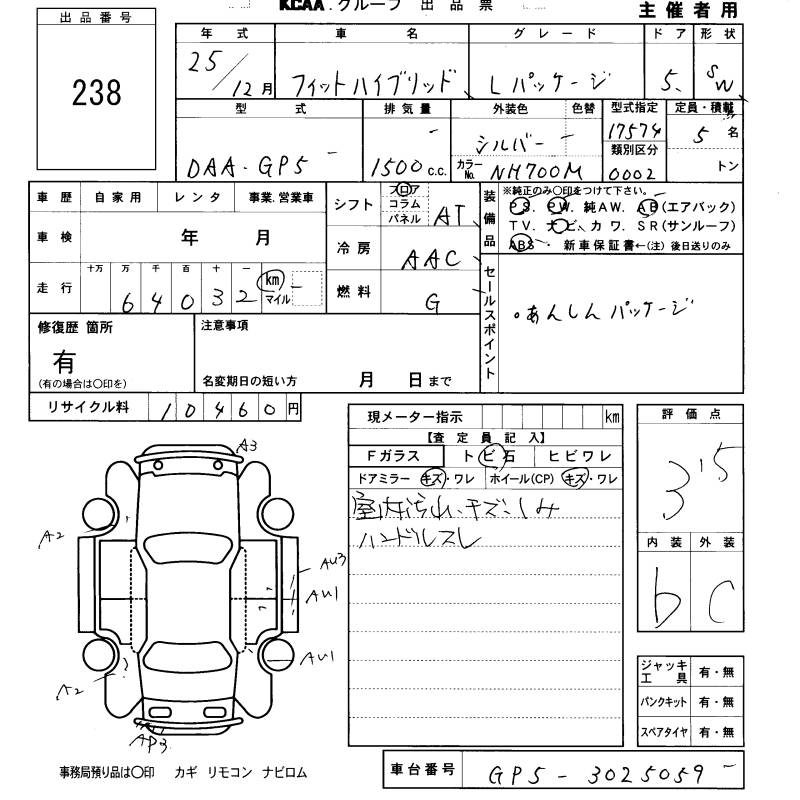 KCAA.グループ 出品票 主催者用
出品番号
238
年式 車名 グレード ドア 形状
25/12月 フィットハイブリッド Lパッケージ 5 SW
型式 排気量 外装色 色替 型式指定 定員・積載
DAA-GP5 1500c.c. シルバー カラーNo. NH700M 17574 5名
類別区分
0002 トン
車歴 自家用 レンタ 事業.営業車
シフト フロア コラム パネル AT
装備品
※純正のみ○印をつけて下さい。
PS. PW. 純AW. AB(エアバック)
TV. ナビ、カワ. SR(サンルーフ)
ABS 新車保証書←(注)後日送りのみ
車検 年 月
冷房 AAC
走行 十万 万 千 百 十 一
64032 km マイル
燃料 G
セールスポイント
。あんしんパッケージ
修復歴 箇所
有
(有の場合は○印を)
注意事項
名変期日の短い方 月 日まで
リサイクル料 10460円
現メーター指示 km
【査定員記入】
Fガラス トビ石 ヒビワレ
ドアミラー キズ・ワレ ホイール(CP) キズ・ワレ
室内汚れ、キズ、しみ
ハンドルスレ
評価点
3.5
内装 外装
b C
A3
A2
AU3
AU1
AU1
A2
AP3
ジャッキ工具 有・無
パンクキット 有・無
スペアタイヤ 有・無
事務局預り品は○印 カギ リモコン ナビロム
車台番号 GP5-3025059